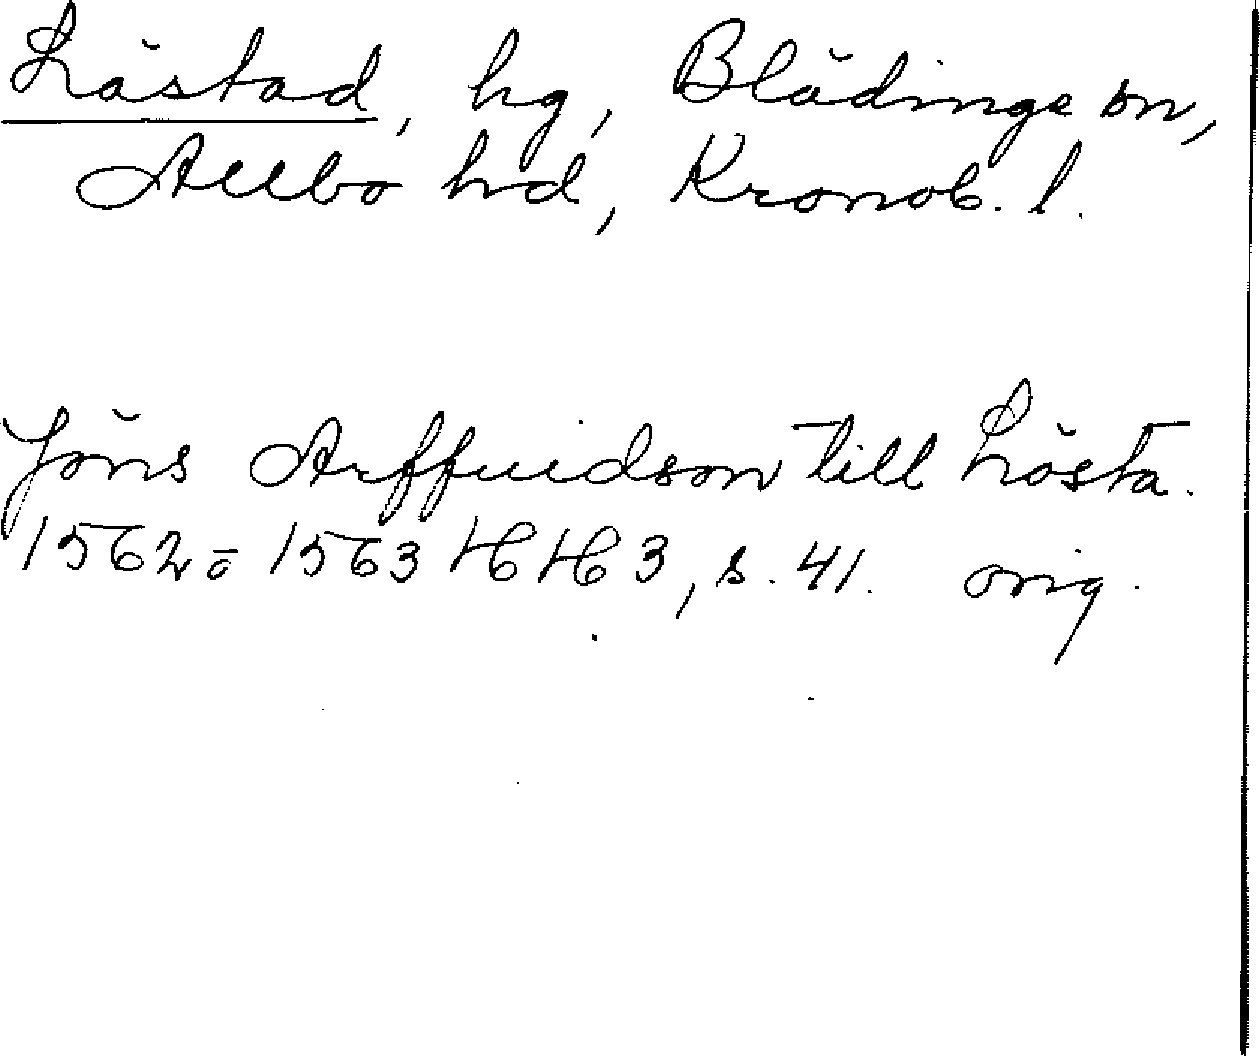 Lästad, hg, Blädinge sn,
Allbo hd, Kronob. l.
Jöns Arffuidson till Lösta.
1562 o 1563 HH 3, s. 41. orig.